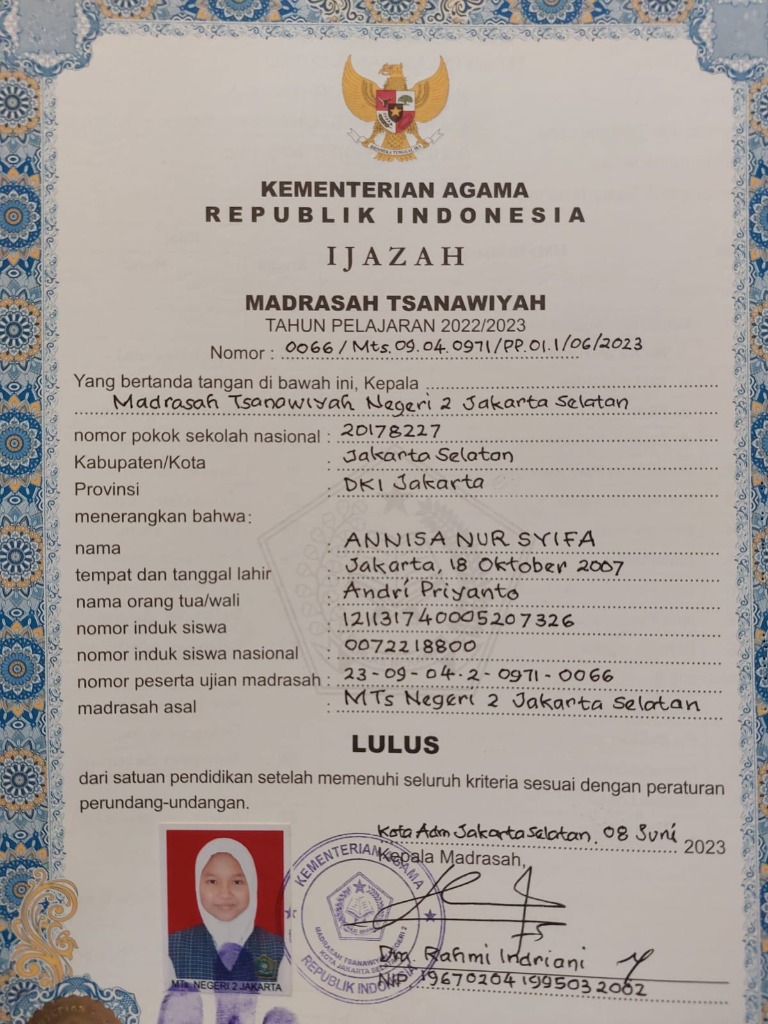 KEMENTERIAN AGAMA
REPUBLIK INDONESIA
IJAZAH
MADRASAH TSANAWIYAH
TAHUN PELAJARAN 2022/2023
Nomor : 0066/Mts.09.04.0971/PP.01.1/06/2023
Yang bertanda tangan di bawah ini, Kepala
Madrasah Tsanawiyah Negeri 2 Jakarta Selatan
nomor pokok sekolah nasional : 20178227
Kabupaten/Kota : Jakarta Selatan
Provinsi : DKI Jakarta
menerangkan bahwa:
nama : ANNISA NUR SYIFA
tempat dan tanggal lahir : Jakarta, 18 Oktober 2007
nama orang tua/wali : Andri Priyanto
nomor induk siswa : 121131740005207326
nomor induk siswa nasional : 0072218800
nomor peserta ujian madrasah : 23-09-04-2-0971-0066
madrasah asal : MTs Negeri 2 Jakarta Selatan
LULUS
dari satuan pendidikan setelah memenuhi seluruh kriteria sesuai dengan peraturan
perundang-undangan.
Kota Adm Jakarta Selatan, 08 Juni 2023
Kepala Madrasah,
KEMENTERIAN AGAMA
MADRASAH TSANAWIYAH NEGERI 2
KOTA JAKARTA SELATAN
REPUBLIK INDONESIA
MTs. NEGERI 2 JAKARTA
Dra. Rahmi Indriani
NIP. 196702041995032002